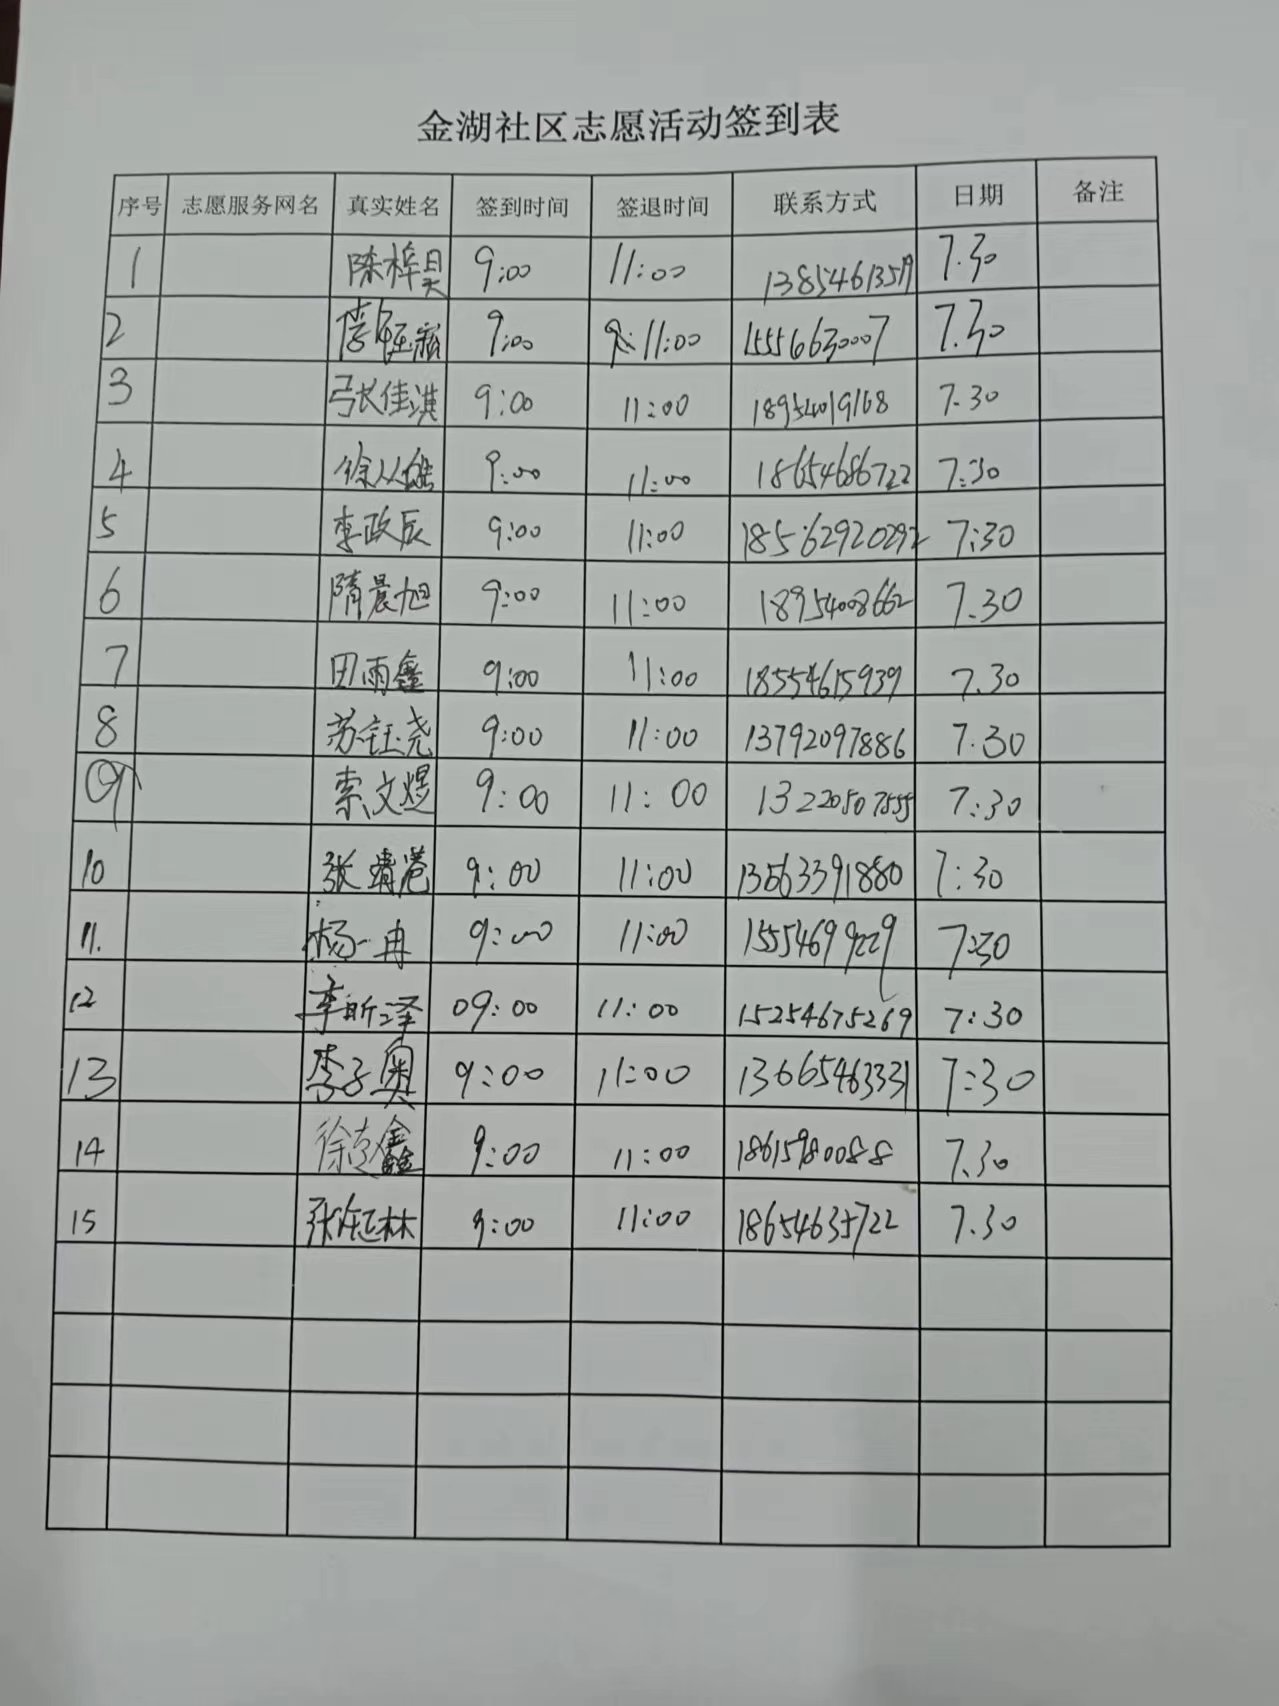 金湖社区志愿活动签到表
序号 志愿服务网名 真实姓名 签到时间 签退时间 联系方式 日期 备注
1 陈梓昊 9:00 11:00 7.30
2 李 9:00 11:00 15556630007 7.30
3 张佳淇 9:00 11:00 18954019168 7.30
4 徐 9:00 11:00 18654686722 7:30
5 李政辰 9:00 11:00 18562920292 7:30
6 隋晨旭 9:00 11:00 18954008662 7.30
7 田雨鑫 9:00 11:00 18554615939 7.30
8 苏钰尧 9:00 11:00 13792097886 7.30
9 索文煜 9:00 11:00 13220507555 7:30
10 张靖 9:00 11:00 13563391880 7:30
11. 杨一冉 9:00 11:00 15554699229 7:30
12 李昕泽 09:00 11:00 15254675269 7:30
13 李子奥 9:00 11:00 13665463331 7:30
14 徐 鑫 9:00 11:00 18615980088 7.30
15 张钰林 9:00 11:00 18654635722 7.30